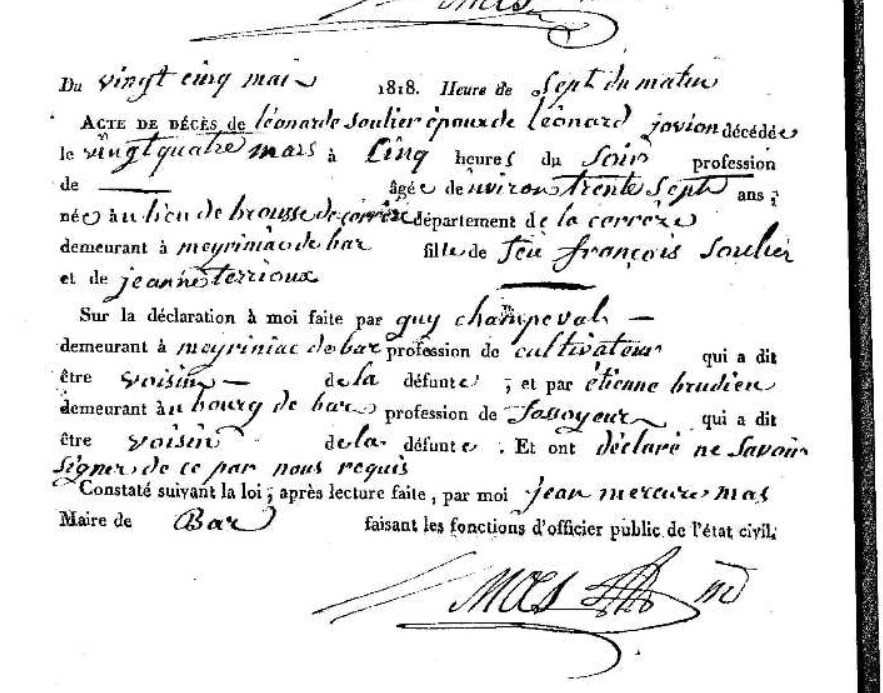 mas
Du vingt cinq mai 1818. Heure de Sept du matin
ACTE DE DÉCÈS de léonarde Soulier épouse de léonard jovion décédée
le vingt quatre mars à Cinq heures du Soir profession
de — âgée denviron trente Sept ans ;
née àu lieu de brousse de corrèze département de la corrèze
demeurant à meyriniac de bar fille de feu françois Soulier
et de jeanne terrioux
Sur la déclaration à moi faite par guy champeval —
demeurant à meyriniac de bar profession de cultivateur qui a dit
être voisin — de la défunte ; et par étienne brudieu
demeurant àu bourg de bar profession de fossoyeur qui a dit
être voisin de la défunte . Et ont déclaré ne Savoir
Signer de ce par nous requis
Constaté suivant la loi ; après lecture faite, par moi jean mercure mas
Maire de Bar faisant les fonctions d'officier public de l'état civil.
mas